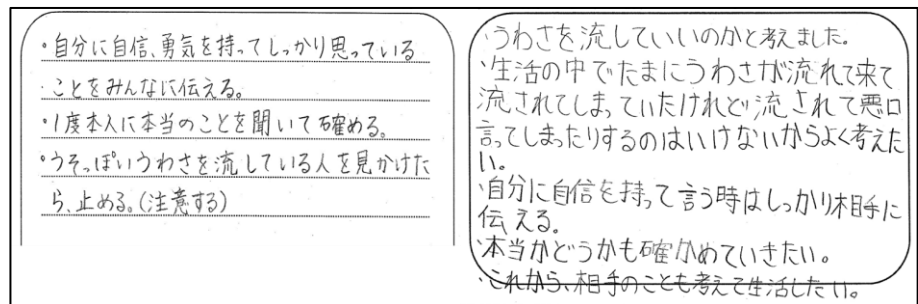 ・自分に自信、勇気を持ってしっかり思っている
ことをみんなに伝える。
・1度本人に本当のことを聞いて確める。
・うそっぽいうわさを流している人を見かけた
ら、止める。(注意する)
・うわさを流していいのかと考えました。
・生活の中でたまにうわさが流れて来て
流されてしまっていたけれど流されて悪口
言ってしまったりするのはいけないからよく考えた
い。
・自分に自信を持って言う時はしっかり相手に
伝える。
・本当かどうかも確かめていきたい。
・これから、相手のことも考えて生活したい。